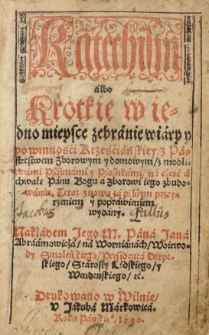 Katechism
albo
Krotkie w ie-
dno mieysce zebránie wiáry y
powinnośći Krześćiáńskiey, z Pá-
sterstwem zborowym y domowym, z modli-
twámi, Psálmámi y Piosnkámi, ná cześć á
chwałę Pánu Bogu á zborowi iego zbudo-
wánie. Teraz znowu zá pilnym przey-
rzeniem y popráwieniem,
wydány.
Jacobus Gellius
Nakłádem Jego M. Páná Janá
Abrámowiczá, ná Wornianách, Woiewo-
dy Smoleńskiego, Prezydentá Derpt-
skiego, Stárosty Lidskiego, y
Wendeńskiego, &c.
Drukowano w Wilnie,
v Jakubá Márkowiczá.
Roku Páńskie: 1600.